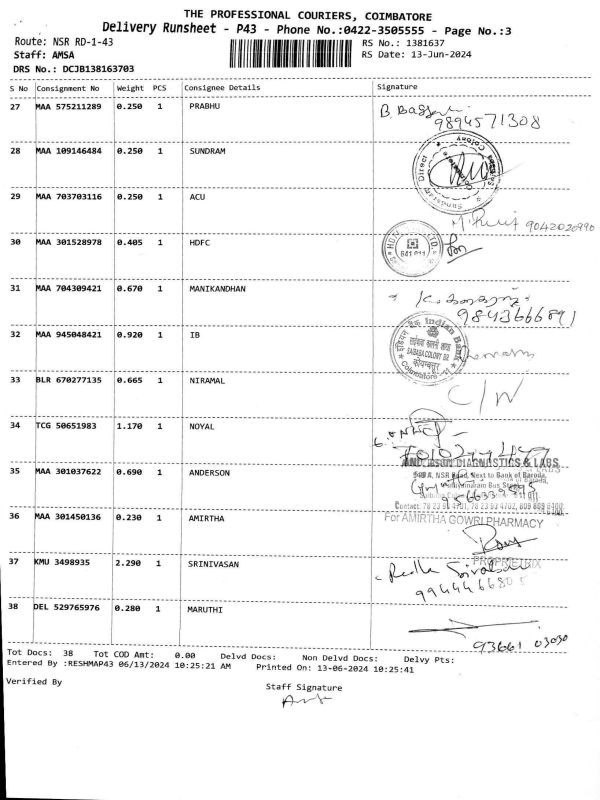 THE PROFESSIONAL COURIERS, COIMBATORE
Delivery Runsheet - P43 - Phone No.:0422-3505555 - Page No.:3
Route: NSR RD-1-43 RS No.: 1381637
Staff: AMSA RS Date: 13-Jun-2024
DRS No.: DCJB138163703
S No Consignment No Weight PCS Consignee Details Signature
27 MAA 575211289 0.250 1 PRABHU
9894571308
28 MAA 109146484 0.250 1 SUNDRAM
Direct Colony
29 MAA 703703116 0.250 1 ACU
9042020990
30 MAA 301528978 0.405 1 HDFC
641 011
31 MAA 704309421 0.670 1 MANIKANDHAN
9843666891
32 MAA 945048421 0.920 1 IB
इंडियन बैंक Indian Bank
SAIBABA COLONY BR
कोयम्बत्तूर
Coimbatore - 11
33 BLR 670277135 0.665 1 NIRAMAL
C/W
34 TCG 50651983 1.170 1 NOYAL
35 MAA 301037622 0.690 1 ANDERSON
DIAGNOSTICS & LABS
NSR Road, Next to Bank of Baroda,
9566339895
36 MAA 301450136 0.230 1 AMIRTHA
For AMIRTHA GOWRI PHARMACY
PROPRIETRIX
37 KMU 3498935 2.290 1 SRINIVASAN
38 DEL 529765976 0.280 1 MARUTHI
93661 03030
Tot Docs: 38 Tot COD Amt: 0.00 Delvd Docs: Non Delvd Docs: Delvy Pts:
Entered By :RESHMAP43 06/13/2024 10:25:21 AM Printed On: 13-06-2024 10:25:41
Verified By
Staff Signature